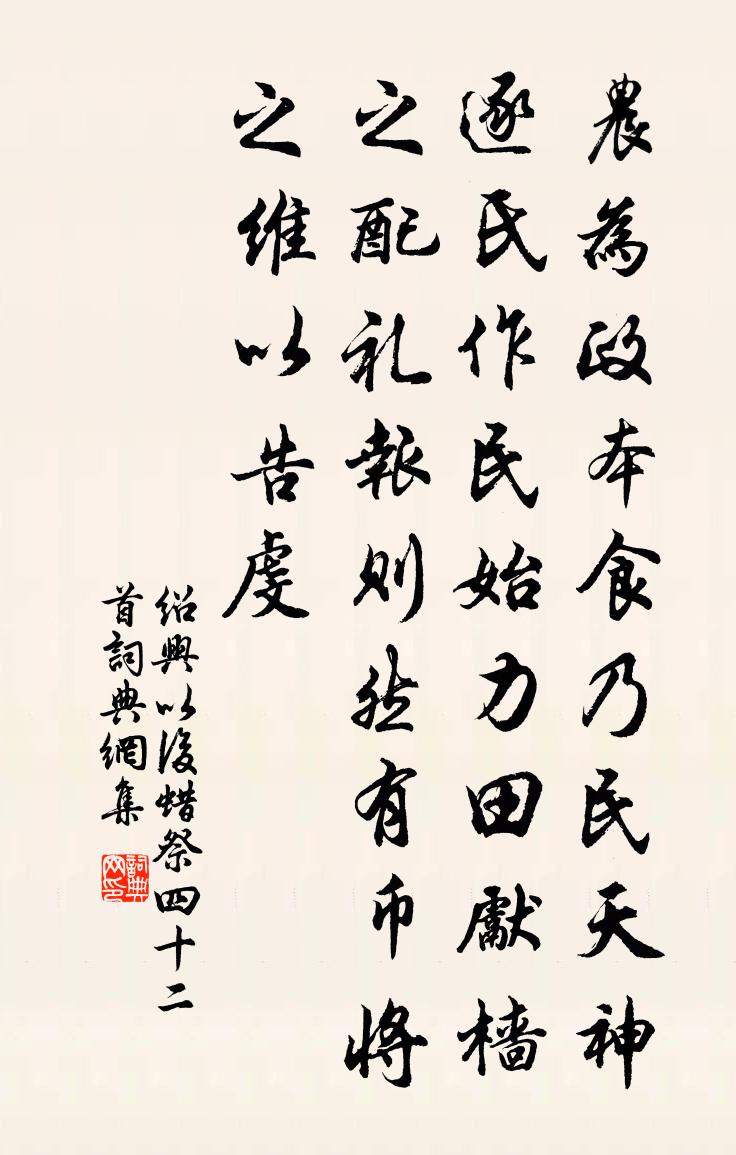 農為政本食乃民天神
逐氏作民始力田獻檣
之配礼報則然有币將
之維以告虔
紹興以後蜡祭四十二
首詞典網集
詞典
网印